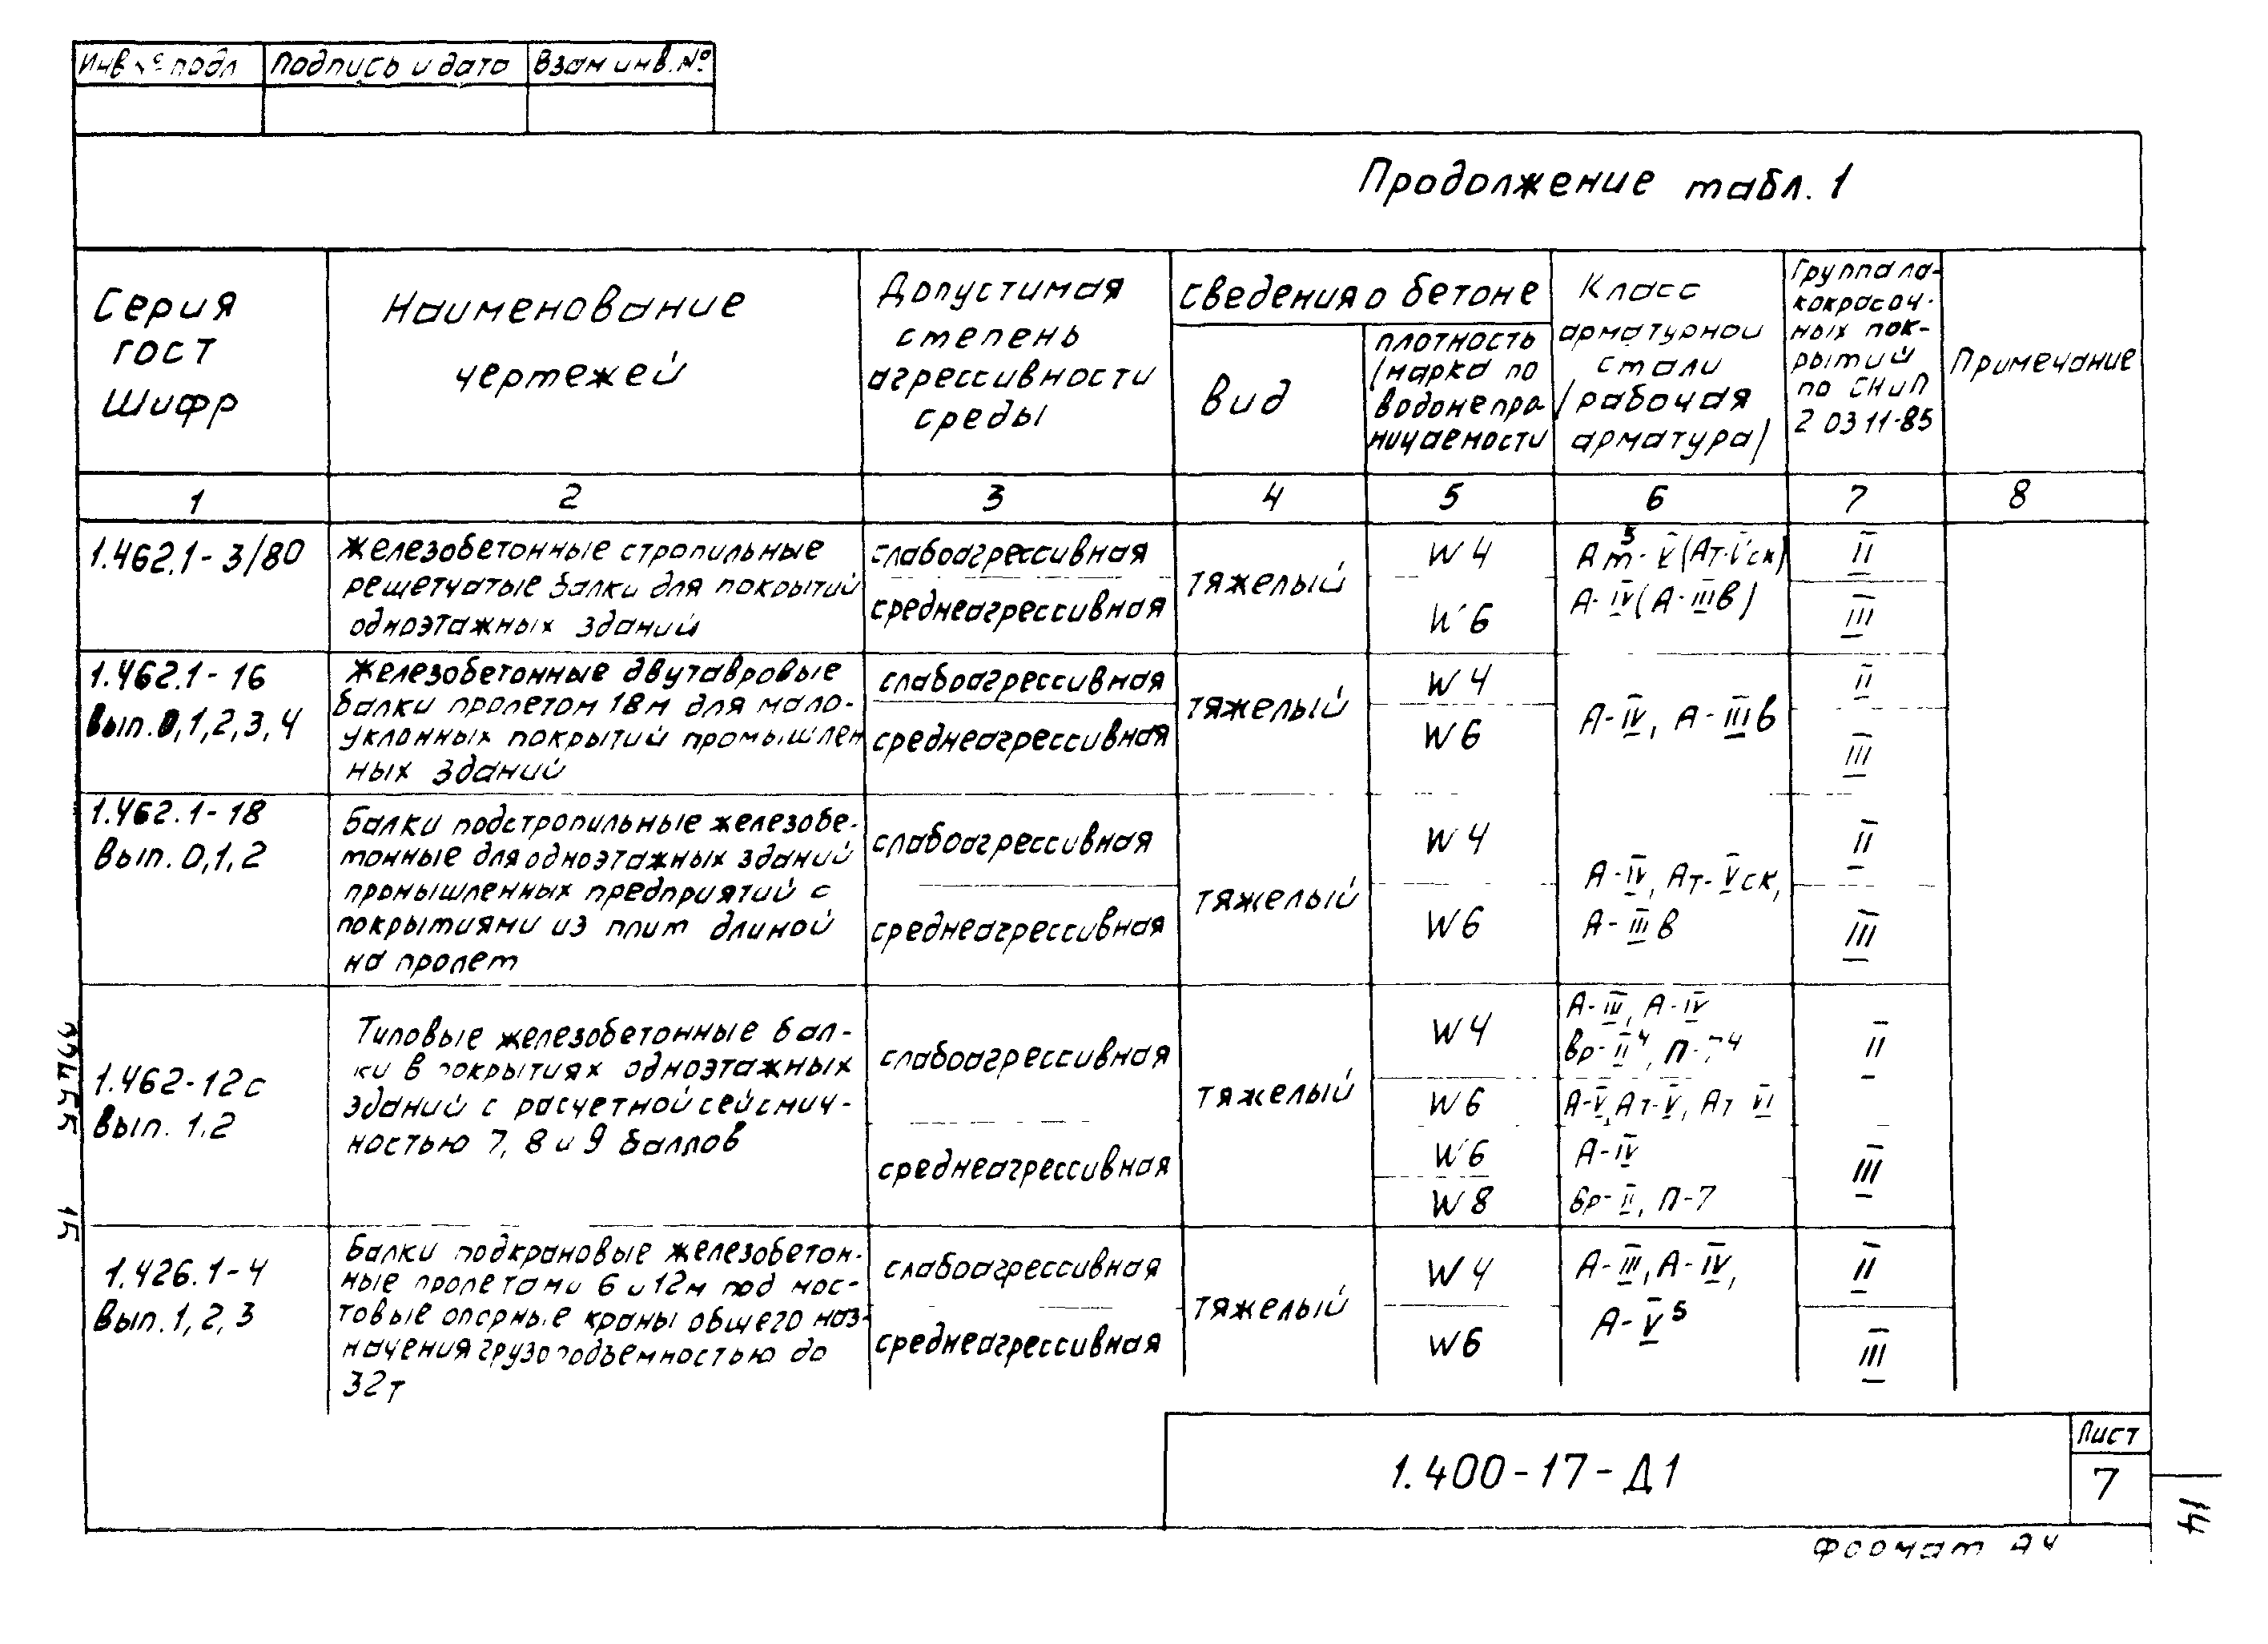 Инв № подл Подпись и дата Взам инв. №
Продолжение табл. 1
Серия
ГОСТ
Шифр
Наименование
чертежей
Допустимая
степень
агрессивности
среды
Сведения о бетоне
Вид
плотность
/марка по
водонепро-
ницаемости/
Класс
арматурной
стали
/рабочая
арматура/
Группа ла-
кокрасоч-
ных пок-
рытий
по СНиП
2 03 11-85
Примечание
1 2 3 4 5 6 7 8
1.462.1-3/80
Железобетонные стропильные
решетчатые балки для покрытий
одноэтажных зданий
слабоагрессивная
среднеагрессивная
тяжелый
W4
W6
Ат⁵-V (Ат-Vск)
А-IV (А-IIIв)
II
III
1.462.1-16
Вып. 0,1,2,3,4
Железобетонные двутавровые
балки пролетом 18м для мало-
уклонных покрытий промышлен
ных зданий
слабоагрессивная
среднеагрессивная
тяжелый
W4
W6
А-IV, А-IIIв
II
III
1.462.1-18
Вып. 0,1,2
Балки подстропильные железобе-
тонные для одноэтажных зданий
промышленных предприятий с
покрытиями из плит длиной
на пролет
слабоагрессивная
среднеагрессивная
тяжелый
W4
W6
А-IV, Ат-Vск,
А-IIIв
II
III
1.462-12с
Вып. 1.2
Типовые железобетонные бал-
ки в покрытиях одноэтажных
зданий с расчетной сейсмич-
ностью 7, 8 и 9 баллов
слабоагрессивная
среднеагрессивная
тяжелый
W4
W6
W6
W8
А-III, А-IV
Вр-II⁴, П-7⁴
А-V, Ат-V, Ат VI
А-IV
Вр-II, П-7
II
III
1.426.1-4
Вып. 1,2,3
Балки подкрановые железобетон-
ные пролетами 6 и 12м под мос-
товые опорные краны общего наз-
начения грузоподъемностью до
32т
слабоагрессивная
среднеагрессивная
тяжелый
W4
W6
А-III, А-IV,
А-V⁵
II
III
15
1.400-17-Д1
Лист
7
14
Формат А4